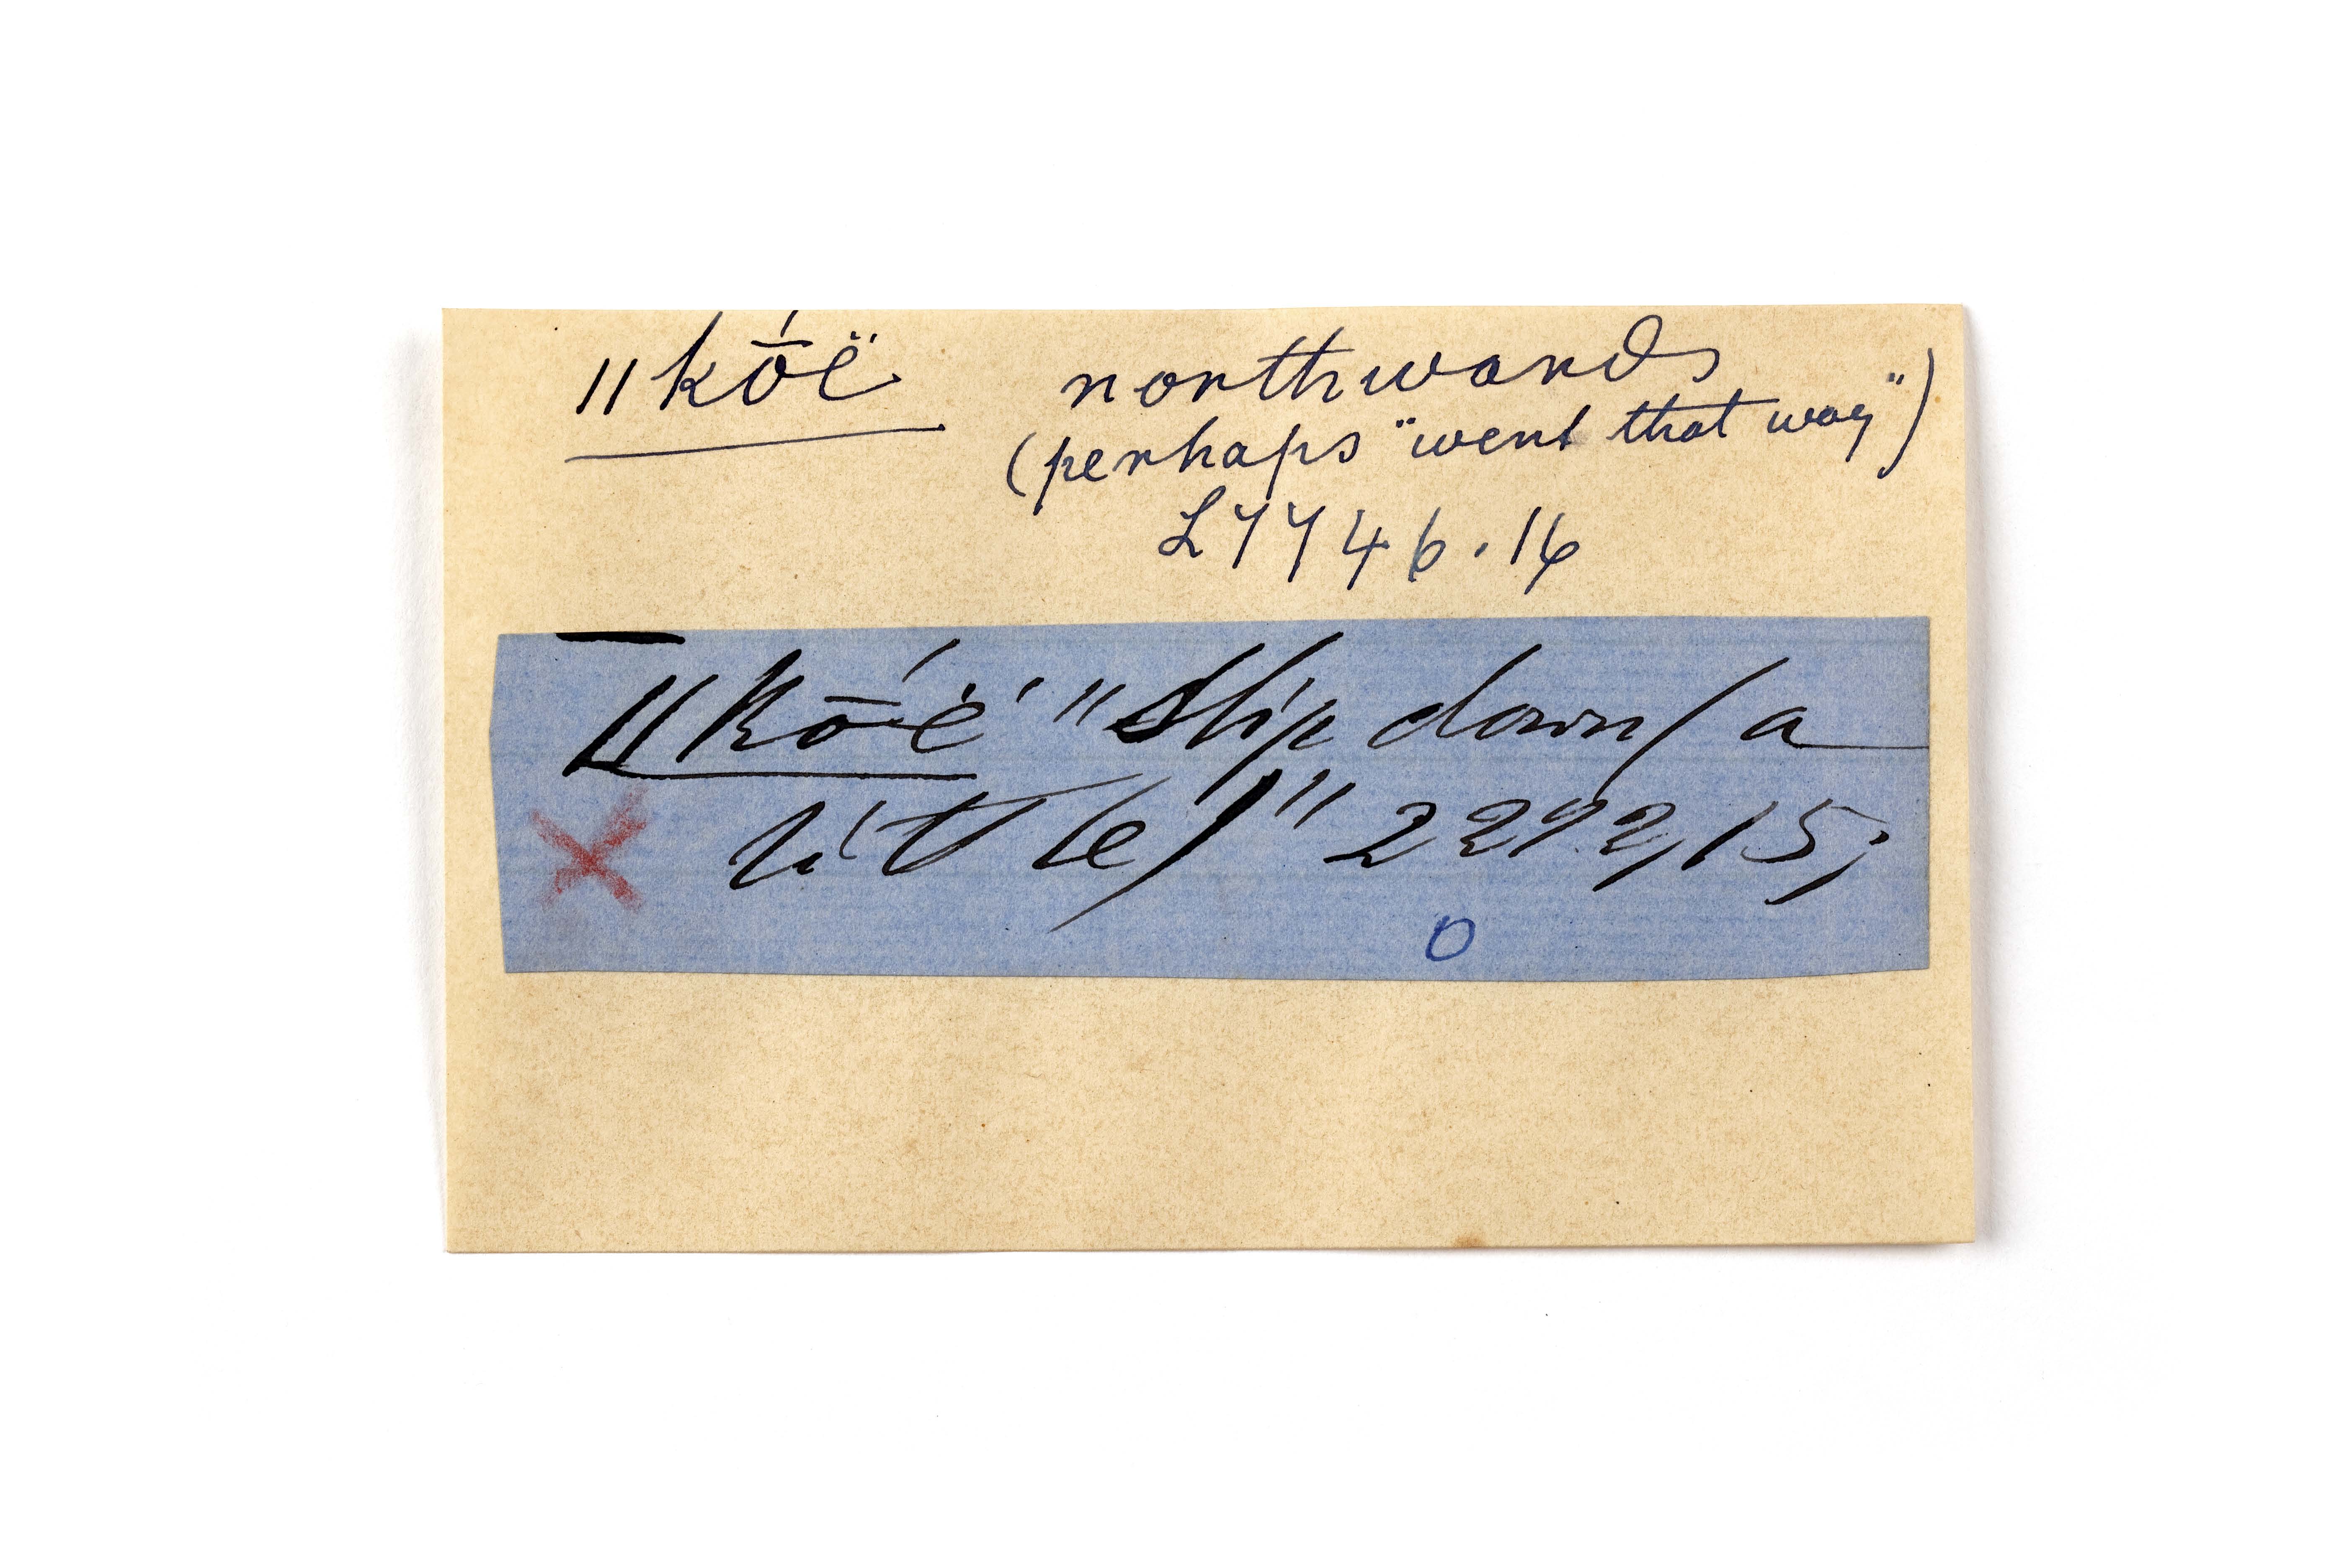 ǁkṓë northwards
(perhaps "went that way")
L 7746.16
ǁkṓë' "slip down (a
little)" 2292,15;
0